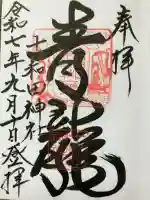 奉拝
青龍
十和田神社
令和七年九月十日登拝